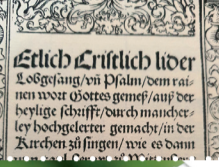 Etlich Cristlich lider
Lobgesang/vñ Psalm/dem rai-
nen wort Gottes gemeß/auß der
heylige schrifft/durch mancher-
ley hochgelerter gemacht/in der
Kirchen zů singen/wie es dann